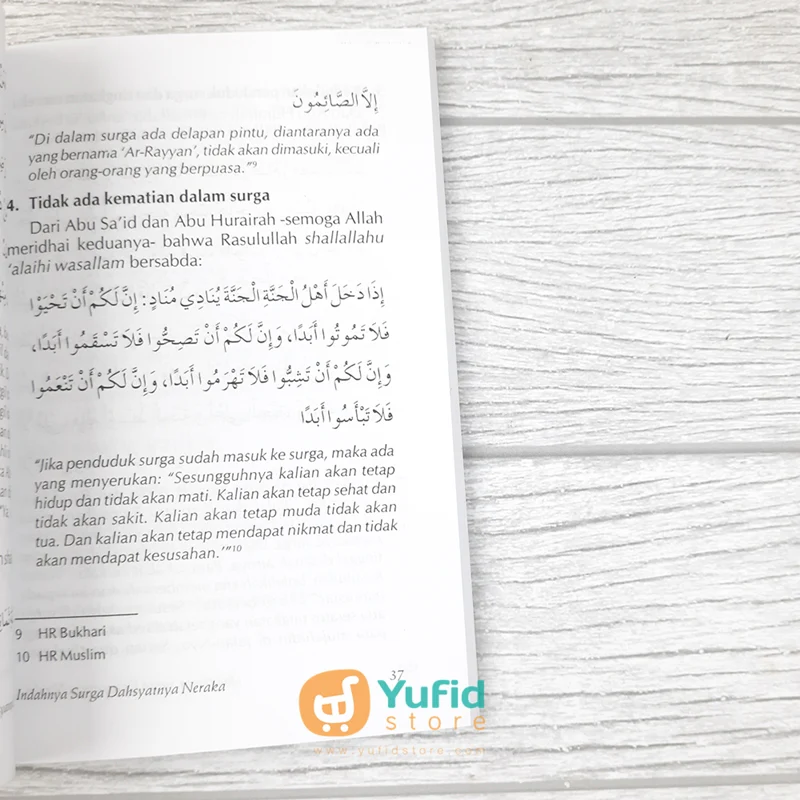 إِلَّا الصَّائِمُونَ
“Di dalam surga ada delapan pintu, diantaranya ada
yang bernama ‘Ar-Rayyan’, tidak akan dimasuki, kecuali
oleh orang-orang yang berpuasa.”9
4. Tidak ada kematian dalam surga
Dari Abu Sa’id dan Abu Hurairah -semoga Allah
meridhai keduanya- bahwa Rasulullah shallallahu
‘alaihi wasallam bersabda:
إِذَا دَخَلَ أَهْلُ الْجَنَّةِ الْجَنَّةَ يُنَادِي مُنَادٍ: إِنَّ لَكُمْ أَنْ تَحْيَوْا
فَلَا تَمُوتُوا أَبَدًا، وَإِنَّ لَكُمْ أَنْ تَصِحُّوا فَلَا تَسْقَمُوا أَبَدًا،
وَإِنَّ لَكُمْ أَنْ تَشِبُّوا فَلَا تَهْرَمُوا أَبَدًا، وَإِنَّ لَكُمْ أَنْ تَنْعَمُوا
فَلَا تَبْأَسُوا أَبَدًا
“Jika penduduk surga sudah masuk ke surga, maka ada
yang menyerukan: “Sesungguhnya kalian akan tetap
hidup dan tidak akan mati. Kalian akan tetap sehat dan
tidak akan sakit. Kalian akan tetap muda tidak akan
tua. Dan kalian akan tetap mendapat nikmat dan tidak
akan mendapat kesusahan.’”10
9 HR Bukhari
10 HR Muslim
Indahnya Surga Dahsyatnya Neraka
37
Yufid
store
www.yufidstore.com